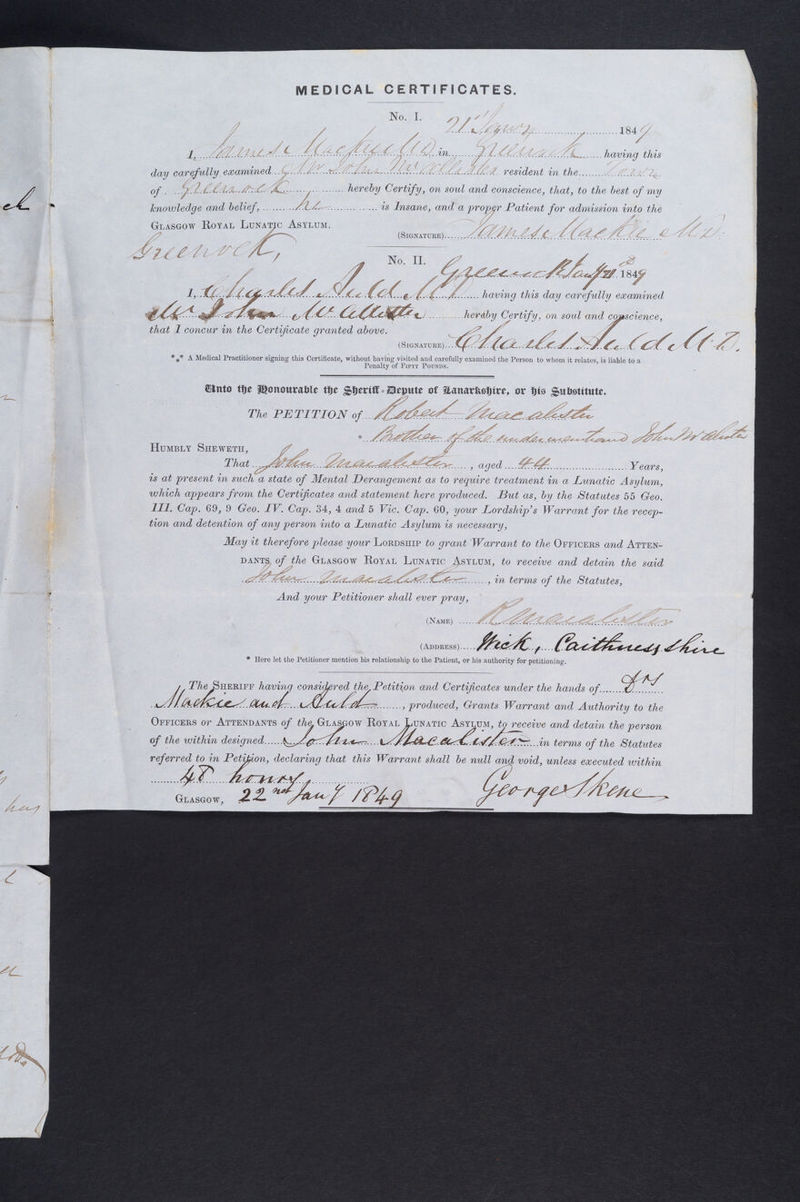 MEDICAL CERTIFICATES.
No. I.
21st Jany 1849
I, James Mackie MD in Greenock having this
day carefully examined Mr John McAlister resident in the Town
of Greenock hereby Certify, on soul and conscience, that, to the best of my
knowledge and belief, he is Insane, and a proper Patient for admission into the
GLASGOW ROYAL LUNATIC ASYLUM.
(SIGNATURE) James Mackie MD.
Greenock,
No. II.
Greenock Jany 21st 1849
I, Charles Auld M.D having this day carefully examined
Mr John McAllister hereby Certify, on soul and conscience,
that I concur in the Certificate granted above.
(SIGNATURE) Charles Auld M.D.
*⁎* A Medical Practitioner signing this Certificate, without having visited and carefully examined the Person to whom it relates, is liable to a
Penalty of FIFTY POUNDS.
Unto the Honourable the Sheriff-Depute of Lanarkshire, or his Substitute.
The PETITION of Robert Macalister
* Brother of the undermentioned John McAlister
HUMBLY SHEWETH,
That John Macalister, aged 44 Years,
is at present in such a state of Mental Derangement as to require treatment in a Lunatic Asylum,
which appears from the Certificates and statement here produced. But as, by the Statutes 55 Geo.
III. Cap. 69, 9 Geo. IV. Cap. 34, 4 and 5 Vic. Cap. 60, your Lordship's Warrant for the recep-
tion and detention of any person into a Lunatic Asylum is necessary,
May it therefore please your LORDSHIP to grant Warrant to the OFFICERS and ATTEN-
DANTS of the GLASGOW ROYAL LUNATIC ASYLUM, to receive and detain the said
John Macalister, in terms of the Statutes,
And your Petitioner shall ever pray,
(NAME) R Macalister
(ADDRESS) Wick, Caithness shire
* Here let the Petitioner mention his relationship to the Patient, or his authority for petitioning.
The SHERIFF having considered the Petition and Certificates under the hands of Drs
Mackie and Auld, produced, Grants Warrant and Authority to the
OFFICERS or ATTENDANTS of the GLASGOW ROYAL LUNATIC ASYLUM, to receive and detain the person
of the within designed John Macalister in terms of the Statutes
referred to in Petition, declaring that this Warrant shall be null and void, unless executed within
48 hours
GLASGOW, 22nd Jany 1849 George Skene